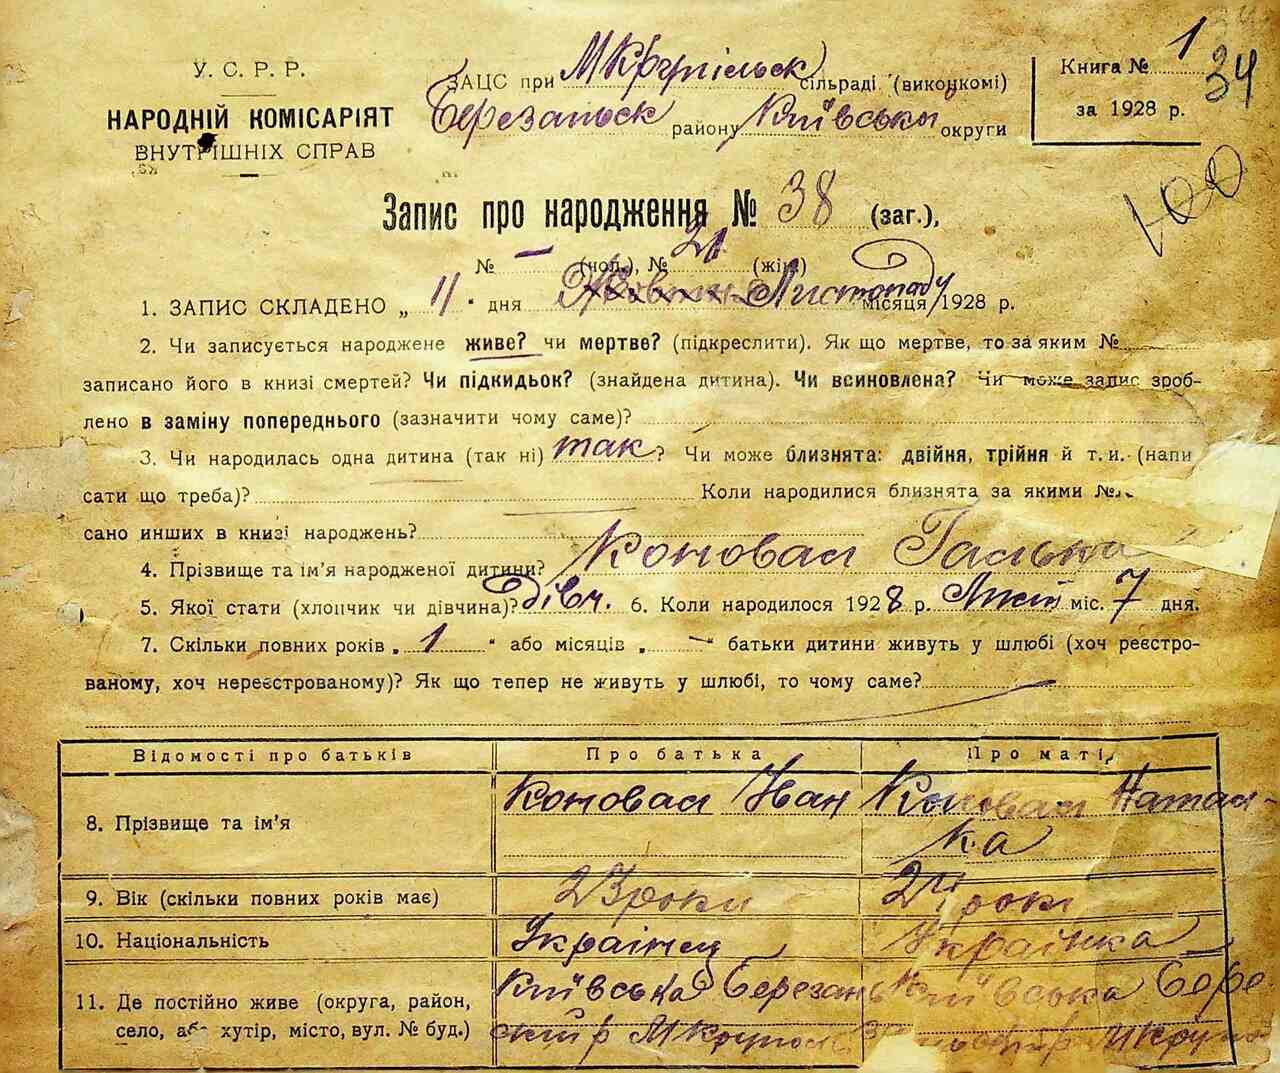 У. С. Р. Р.
НАРОДНІЙ КОМІСАРІЯТ
ВНУТРІШНІХ СПРАВ
ЗАЦС при МКрупільск сільраді (виконкомі)
Березанськ району Київськи округи
Книга № 1
34
за 1928 р.
100
Запис про народження № 38 (заг.),
№ — (чол.), № 21 (жін.)
1. ЗАПИС СКЛАДЕНО „ 11 " дня Жовтня Листопаду місяця 1928 р.
2. Чи записується народжене живе? чи мертве? (підкреслити). Як що мертве, то за яким №
записано його в книзі смертей? Чи підкидьок? (знайдена дитина). Чи всиновлена? Чи може запис зроб-
лено в заміну попереднього (зазначити чому саме)?
3. Чи народилась одна дитина (так ні) так? Чи може близнята: двійня, трійня й т. и. (напи
сати що треба)? Коли народилися близнята за якими №
сано инших в книзі народжень?
4. Прізвище та ім'я народженої дитини? Коновал Галька
5. Якої стати (хлопчик чи дівчина)? дівч. 6. Коли народилося 1928 р. міс. 7 дня.
7. Скільки повних років „ 1 " або місяців „ — " батьки дитини живуть у шлюбі (хоч реєстро-
ваному, хоч нереєстрованому)? Як що тепер не живуть у шлюбі, то чому саме? —
Відомості про батьків Про батька Про матір
8. Прізвище та ім'я Коновал Іван Коновал Натал-
ка
9. Вік (скільки повних років має) 23 роки 24 роки
10. Національність Українец Українка
11. Де постійно живе (округа, район, Київська Березань Київська Бере
село, або хутір, місто, вул. № буд.) ский р МКрупол р МКрупо